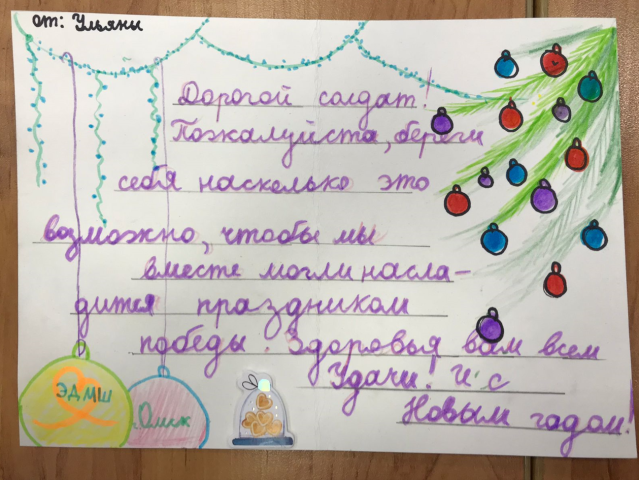 от: Ульяны
Дорогой солдат!
Пожалуйста, береги
себя насколько это
возможно, чтобы мы
вместе могли насла-
дится праздником
победы. Здоровья вам всем
Удачи! И с
Новым годом!
ЭДМШ
Омск